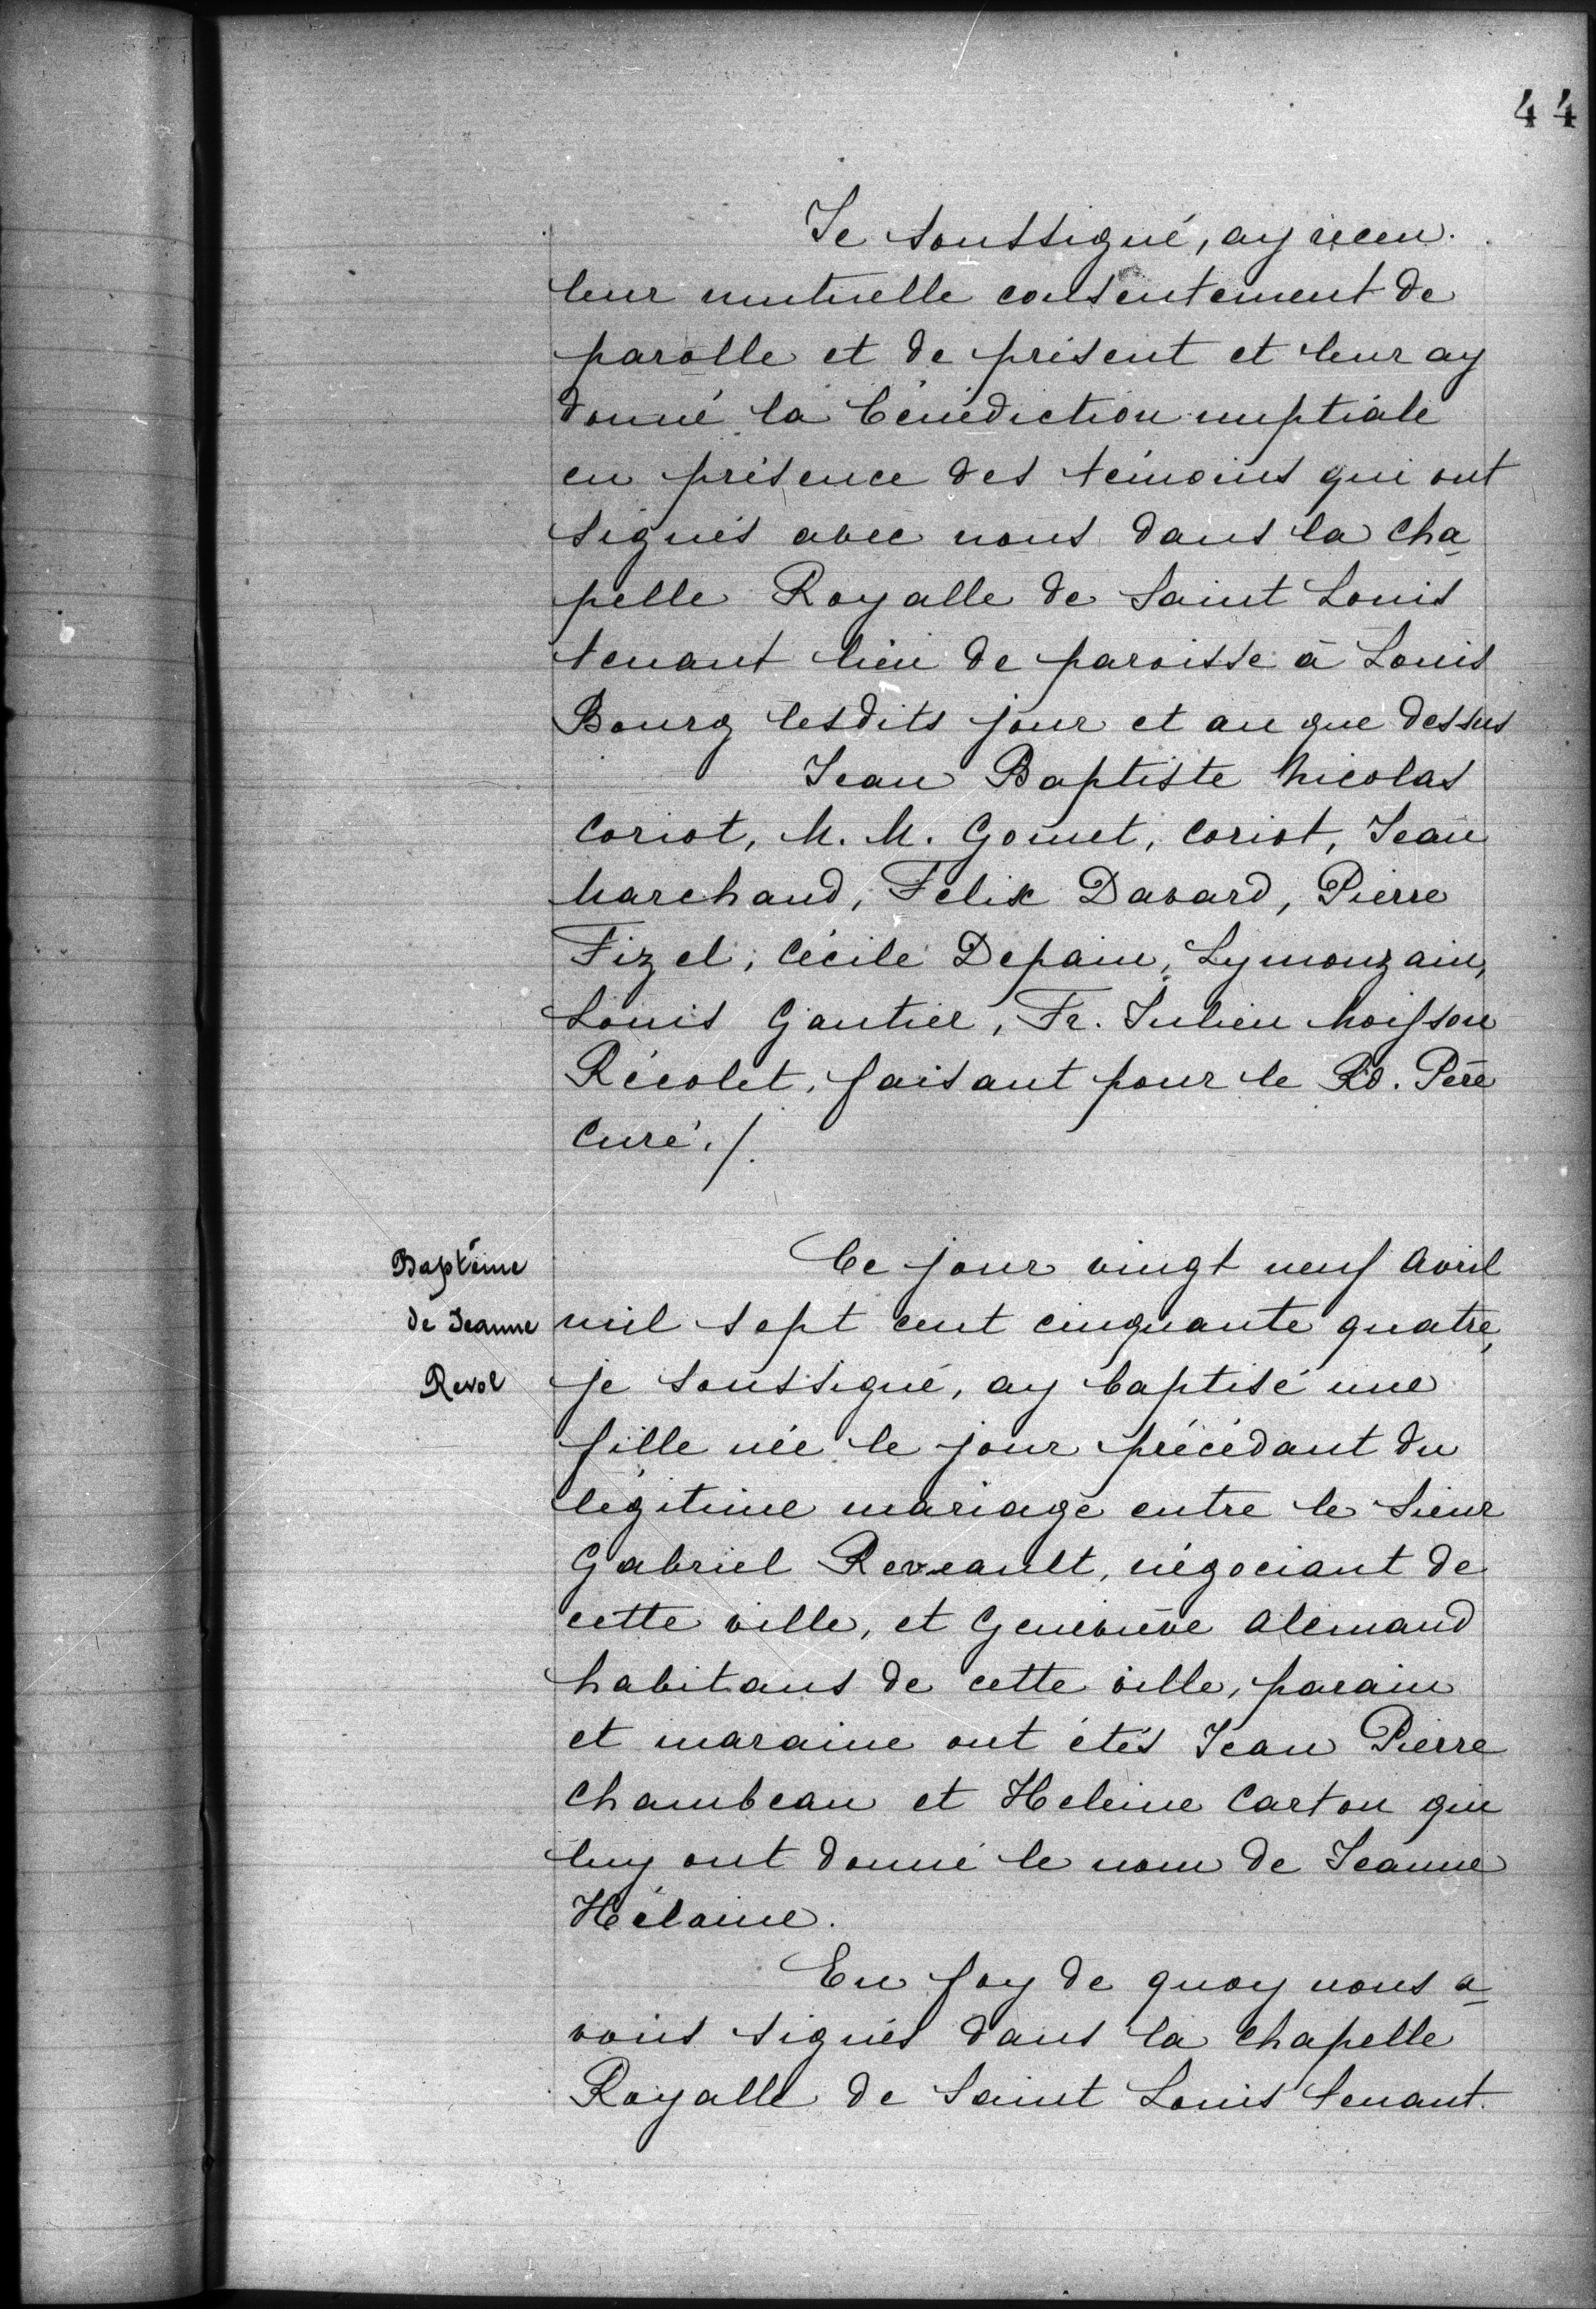 44
Je soussigné, ay receu
leur mutuelle consentement de
parolle et de présent et leur ay
donné la bénédiction nuptiale
en présence des témoins qui ont
signés avec nous dans la cha
pelle Royalle de Saint Louis
tenant lieu de paroisse à Louis
Bourg lesdits jour et an que dessus
Jean Baptiste Nicolas
Coriot, M. M. Gomet, Coriot, Jean
Marchand, Felix Davard, Pierre
Fizel, Cécile Depain, Lymouzain,
Louis Gautier, Fr. Julien Moisson
Récolet, faisant pour le Rd. Père
Curé./.
Baptême
de Jeanne
Revol
Ce jour vingt neuf Avril
mil sept cent cinquante quatre,
je soussigné, ay baptisé une
fille née le jour précédant du
légitime mariage entre le Sieur
Gabriel Reveault, négociant de
cette ville, et Geneviève Alemand
habitans de cette ville, parain
et maraine ont étés Jean Pierre
Chambeau et Heleine Carton qui
luy ont donné le nom de Jeanne
Hélaine.
En foy de quoy nous a
vons signés dans la chapelle
Royalle de Saint Louis tenant